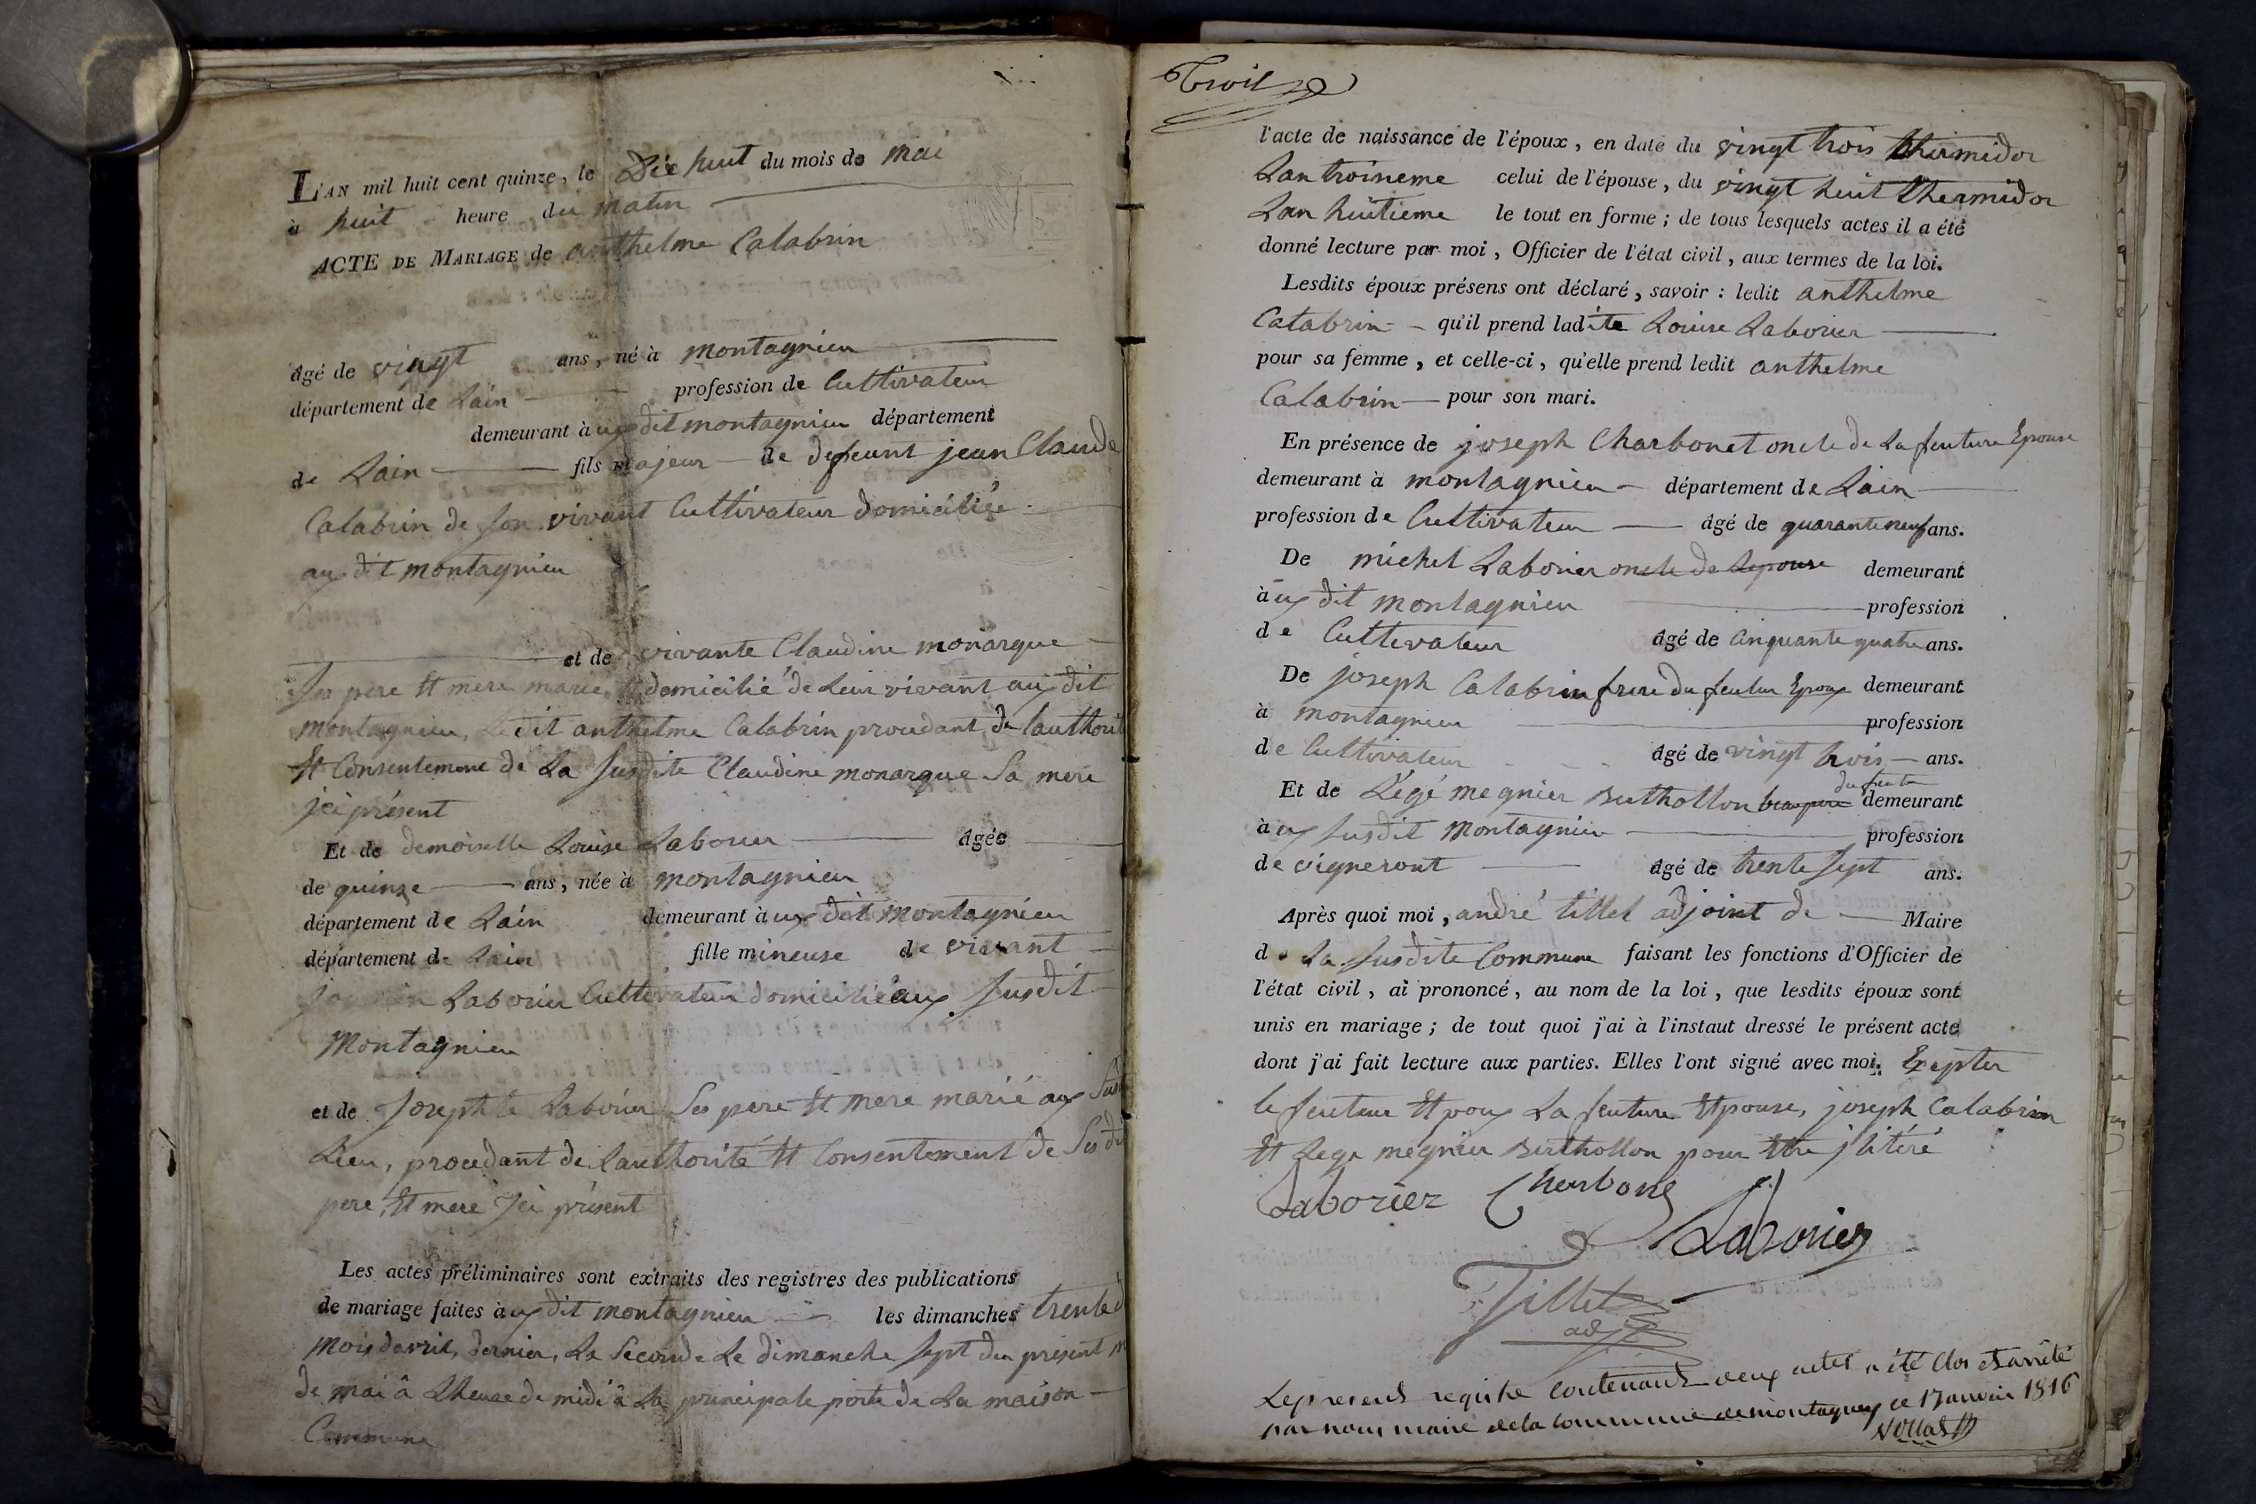 L'AN mil huit cent quinze, le Dix huit du mois de mai
à huit heure du matin
ACTE DE MARIAGE de anthelme Calabrin
âgé de vingt ans, né à montagnieu
département de Lain profession de Cultivateur
demeurant à ux dit montagnieu département
de Lain fils majeur de defeunt jean Claude
Calabrin de son vivant Cultivateur domiciliée
aux dit montagnieu
et de vivante Claudine monarque
Ses pere Et mere marié, Et domicilié de Leur vivant aux dit
montagnieu, Ledit anthelme Calabrin procedant de lauthorit
Et Consentement de La susdite Claudine monarque Sa mere
jci présent
Et de demoiselle Louise Laborier âgée
de quinze ans, née à montagnieu
département de Lain demeurant à ux dit montagnieu
département de Lain fille mineuse de vivant
Laborier Cultivateur domicilié aux susdit
Montagnieu
et de Josephte Laborier Ses pere Et mere marié aux Sus
Lieu, procedant de Lauthorité Et Consentement de Ses di
pere, Et mere Jci présent
Les actes préliminaires sont extraits des registres des publications
de mariage faites à ux dit montagnieu les dimanches trente d
Mois davril, dernier, La Seconde Le dimanche sept du présent m
de mai â Lheure de midi â La principale porte de La maison
Commune
Troi
l'acte de naissance de l'époux, en date du vingt trois thermidor
Lan troisieme celui de l'épouse, du vingt huit thermidor
Lan huitieme le tout en forme ; de tous lesquels actes il a été
donné lecture par moi, Officier de l'état civil, aux termes de la loi.
Lesdits époux présens ont déclaré, savoir : ledit anthelme
Calabrin qu'il prend ladite Louise Laborier
pour sa femme, et celle-ci, qu'elle prend ledit anthelme
Calabrin pour son mari.
En présence de joseph Charbonet oncle de La feuture Epouse
demeurant à montagnieu département de Lain
profession de Cultivateur âgé de quarante neuf ans.
De michel Laborier oncle de Lepouse demeurant
à ux dit montagnieu profession
de Cultivateur âgé de Cinquante quatre ans.
De joseph Calabrin frere du feutur Epoux demeurant
à montagnieu profession
de Cultivateur âgé de vingt trois ans.
du feutu
Et de Légé megnier Berthollon beaupere demeurant
à ux susdit montagnieu profession
de vigneront âgé de trente sept ans.
Après quoi moi, andré tillet adjoint de Maire
de La susdite Commune faisant les fonctions d'Officier de
l'état civil, ai prononcé, au nom de la loi, que lesdits époux sont
unis en mariage ; de tout quoi j'ai à l'instaut dressé le présent acte
dont j'ai fait lecture aux parties. Elles l'ont signé avec moi. Exepter
le feuteur Etpoux La feuture Etpouse, joseph Calabrin
Et Lege megnier Berthollon pour Etre jlitéré
Laborier Cherbone
Laborier
Tillet
adj
Lepresend registre contenant deux actes a été clos et arrêté
par nous maire de la commune de montagneu ce 1 Janvier 1816